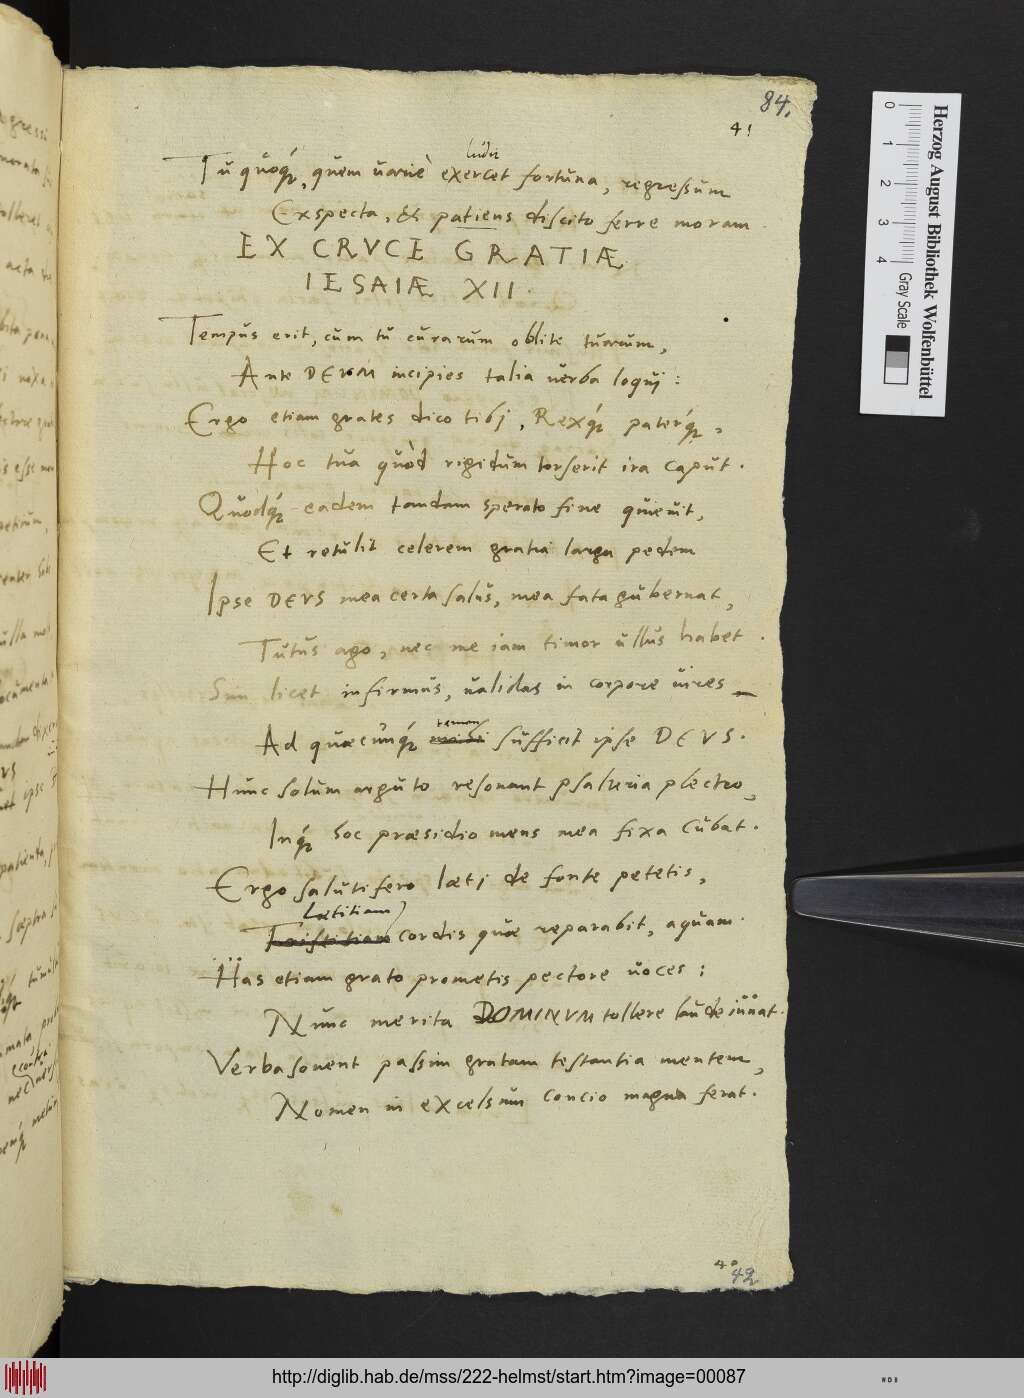 84.
41
ludit
Tu quoq́;, quem uariè exercet fortuna, regressum
Exspecta, & patiens discito ferre moram.
EX CRVCE GRATIÆ.
IESAIÆ XII.
Tempus erit, cum tu curarum oblite tuarum,
Ante DEVM incipies talia uerba loqui:
Ergo etiam grates dico tibj, Rexq́; paterq́;,
Hoc tua quòd rigidum torserit ira caput.
Quodq́; eadem tandam sperato fine quieuit,
Et retulit celerem gratia larga pedem
Ipse DEVS mea certa salus, mea fata gubernat,
Tutus ago, nec me iam timor ullus habet.
Sim licet infirmus, ualidas in corpore uires
tamen
Ad quæcunq́; sufficit ipse DEVS.
Hunc solum arguto resonant psalteria plectro,
Inq́; hoc præsidio mens mea fixa cubat.
Ergo salutifero lætj de fonte petetis,
Lætitiam
Tristitiam cordis quæ reparabit, aquam.
Has etiam grato prometis pectore uoces:
Nunc merita DOMINVM tollere laude iuuat.
Verba sonent passim gratam testantia mentem,
Nomen in excelsum concio magna ferat.
42
Herzog August Bibliothek Wolfenbüttel
Gray Scale
0
1
2
3
4
http://diglib.hab.de/mss/222-helmst/start.htm?image=00087